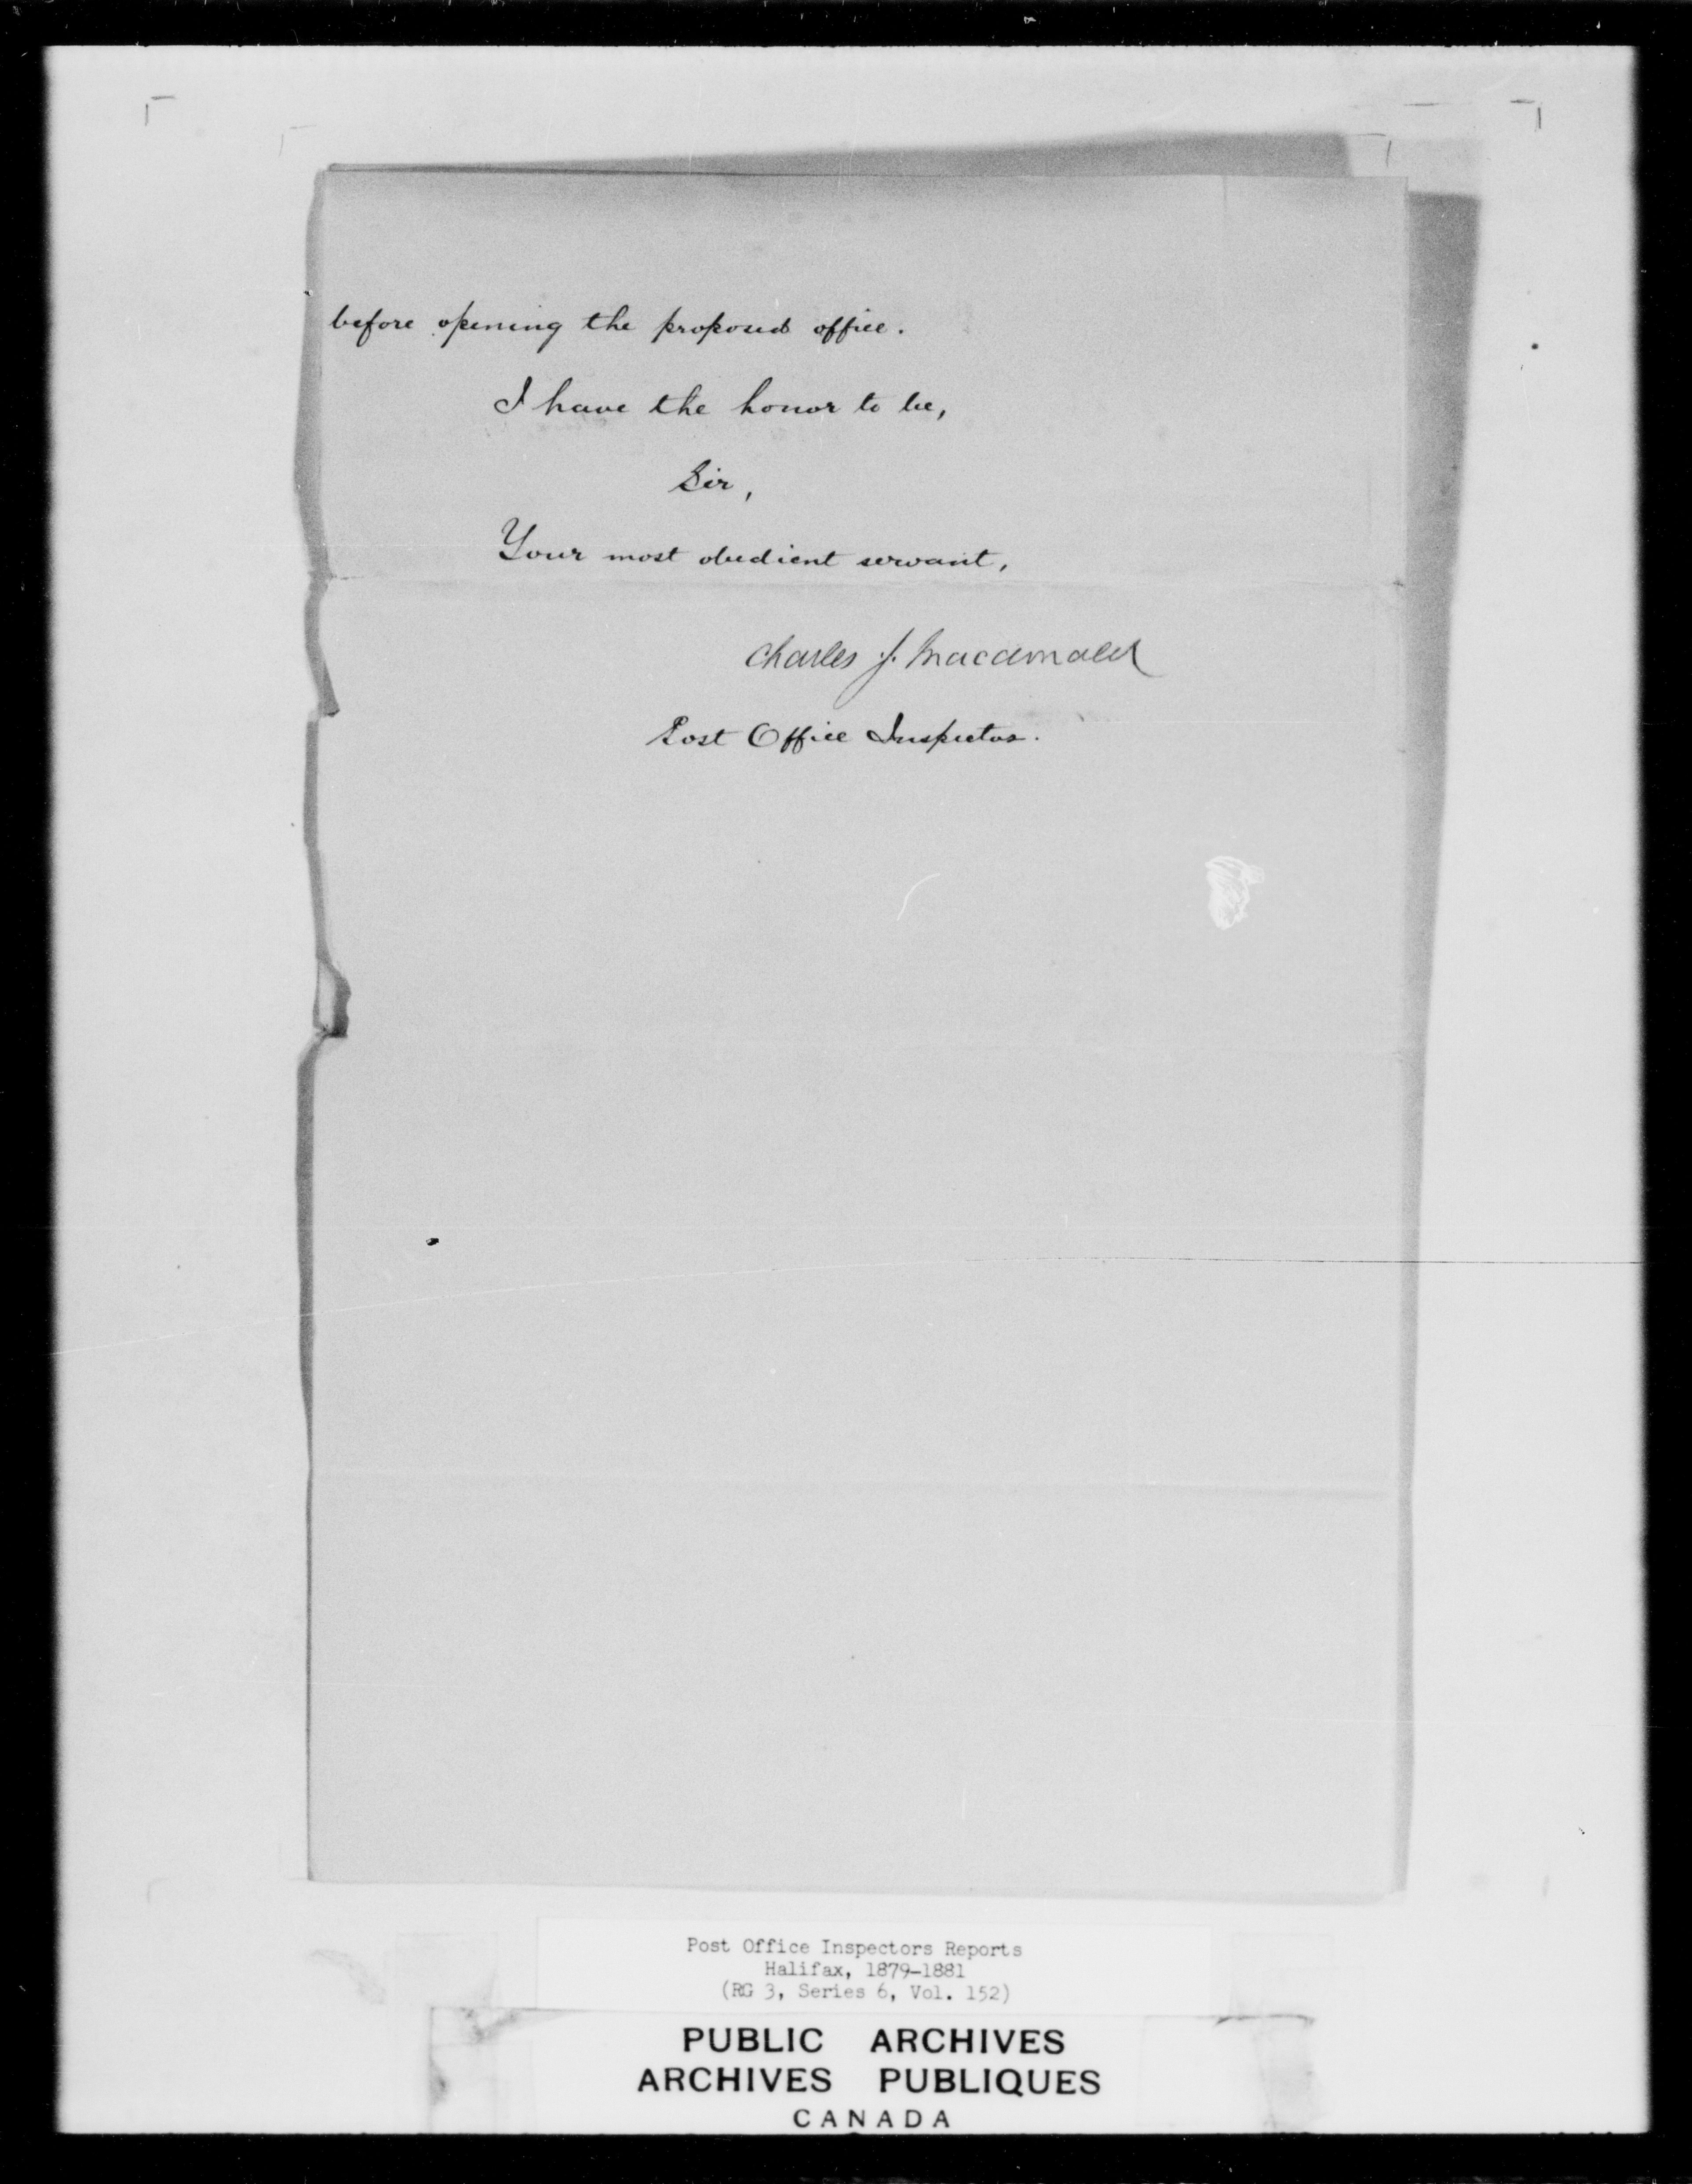 before opening the proposed office.
I have the honor to be,
Sir,
Your most obedient servant,
Charles J. Macdonald
Post Office Inspector.
Post Office Inspectors Reports
Halifax, 1879-1881
(RG 3, Series 6, Vol. 152)
PUBLIC ARCHIVES
ARCHIVES PUBLIQUES
CANADA